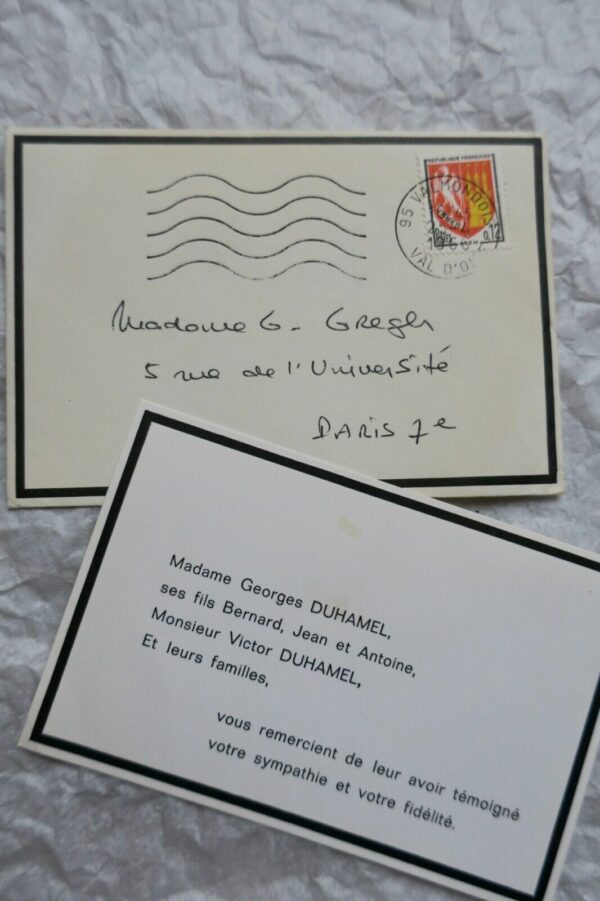 REPUBLIQUE FRANÇAISE
0,12
95 VALMONDOIS
VAL D'O
Madame G. Gregh
5 rue de l'Université
PARIS 7e
Madame Georges DUHAMEL,
ses fils Bernard, Jean et Antoine,
Monsieur Victor DUHAMEL,
Et leurs familles,
vous remercient de leur avoir témoigné
votre sympathie et votre fidélité.